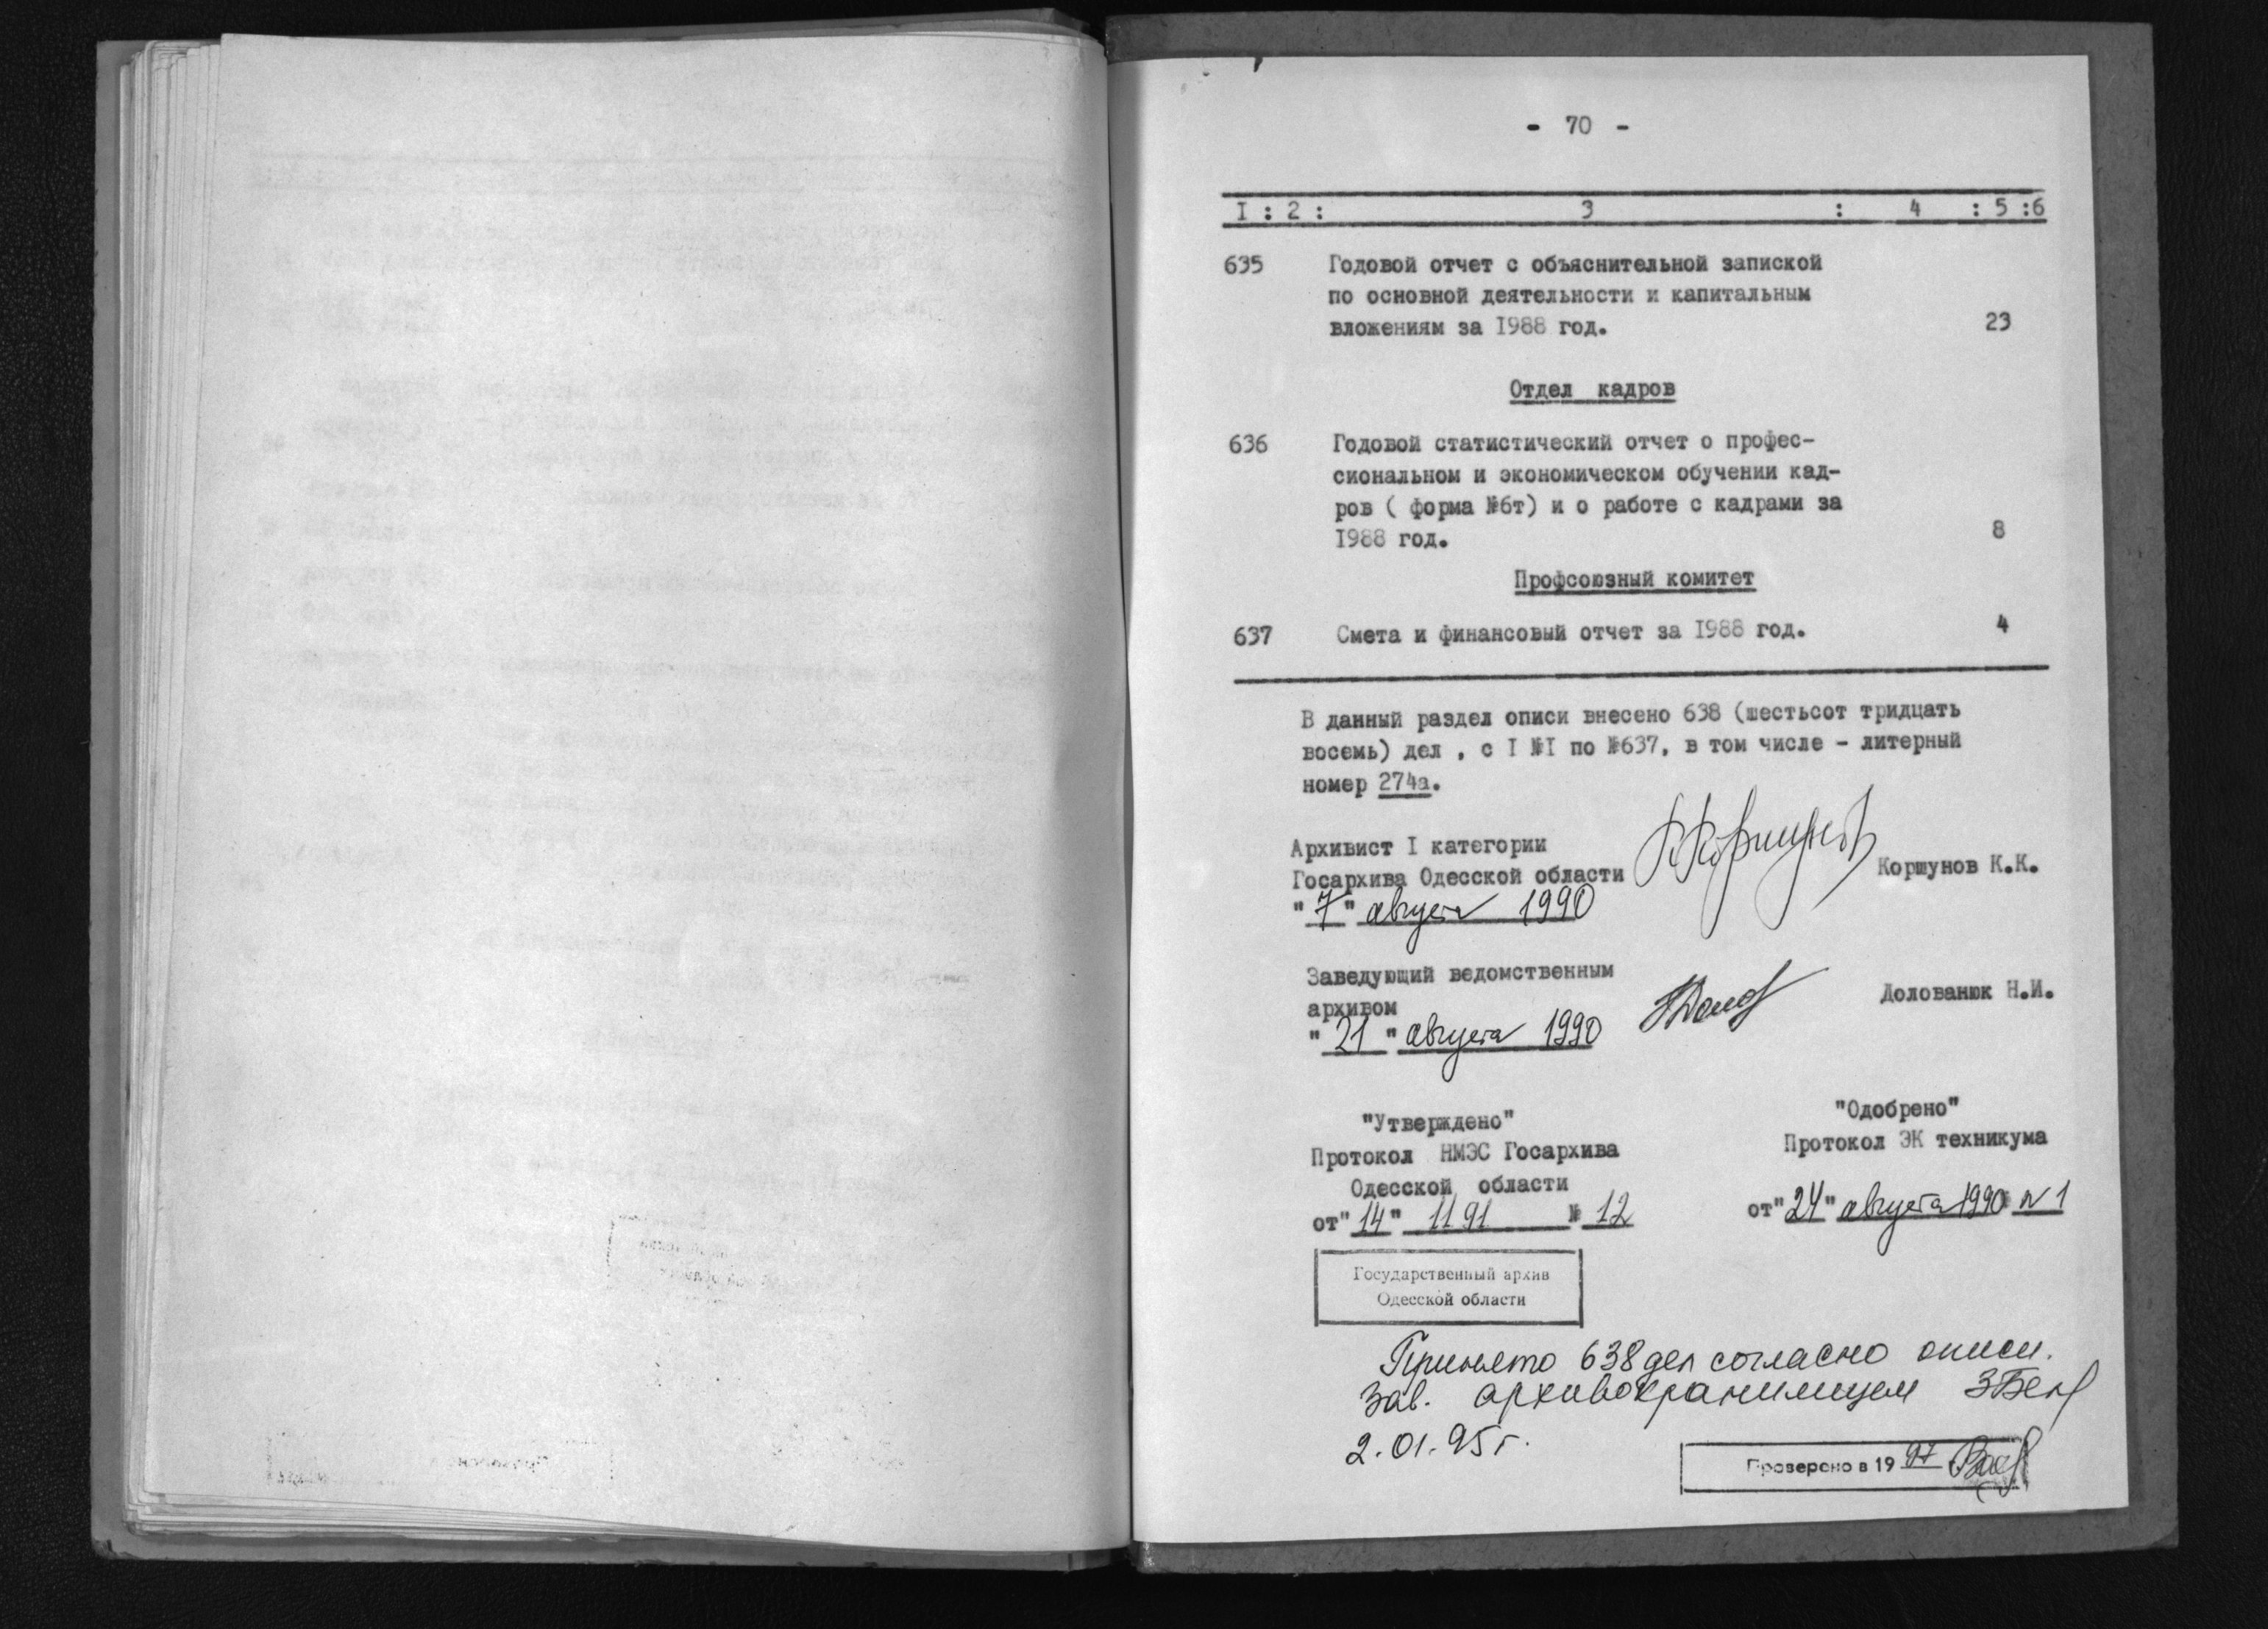 - 70 -
I : 2 : 3 : 4 : 5 :6
635 Годовой отчет с объяснительной запиской
по основной деятельности и капитальным
вложениям за 1988 год. 23
Отдел кадров
636 Годовой статистический отчет о профес-
сиональном и экономическом обучении кад-
ров ( форма №6т) и о работе с кадрами за
1988 год. 8
Профсоюзный комитет
637 Смета и финансовый отчет за 1988 год. 4
В данный раздел описи внесено 638 (шестьсот тридцать
восемь) дел , с I №I по №637, в том числе - литерный
номер 274а.
Архивист I категории
Госархива Одесской области Коршунов К.К.
"7" августа 1990
Заведующий ведомственным
архивом Долованюк Н.И.
"21" августа 1990
"Утверждено"
Протокол НМЭС Госархива
Одесской области
от"14" 11 91 № 12
"Одобрено"
Протокол ЭК техникума
от"24" августа 1990 № 1
Государственный архив
Одесской области
Принято 638 дел согласно описи.
Зав. архивохранилищем ЗБел
2.01.95г.
Проверено в 19 97